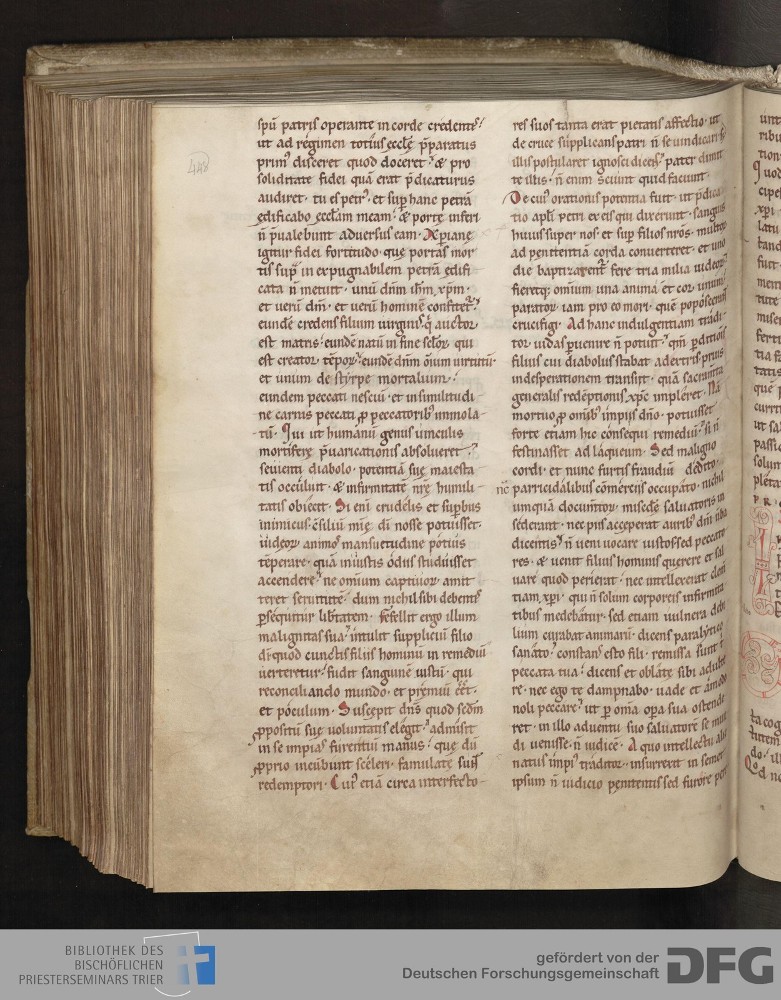 448
spū patris operante in corde credentẽ
ut ad regimen totius ecclę p̄paratus
primꝰ disceret quod doceret; & pro
soliditate fidei quā erat p̄dicaturus
audiret· tu es petrꝰ· et sup̱ hanc petrā
ędificabo ęccl̄am meam· & portę inferi
n̄ p̄ualebunt aduersus eam· Xp̄ianę
igitur fidei fortitudo· quę portas mor
tis sup̱ inexpugnabilem petrā ędifi
cata n̄ metuit· unū dn̄m ih̄m xp̄m·
et uerū dm̄· et uerū hominē confitet᷑·
eundē credens filium uirginis· q̇ auctor
est matris· eundē natū in fine sclor̄· qui
est creator tempor̄· eundē dn̄m om̄ium uirtutū
et unum de styrpe mortalium·
eundem peccati nesciū· et in similitudi
ne carnis peccati ꝓ peccatoribꝰ immola
tū· Qui ut humanū genus uinculis
mortiferę p̄uaricationis absolueret·
seuienti diabolo· potentiā suę maiesta
tis occuluit· & infirmitatē nr̄ę humili
tatis obiecit· Si eni crudelis et supḇus
inimicus c̄siliū mīę di nosse potuisset·
iudeor̄ animos mansuetudine potius
tēperare· quā iniustis odiis studuisset
accendere· ne omium captiuor̄ amit
teret seruitutē· dum nichil sibi debentis
ꝑsequitur lib̄tatem· Fefellit ergo illum
malignitas sua· intulit suppliciū filio
di· quod cunctis filiis hominū in remediū
uerteretur· fudit sanguinē iustū· qui
reconciliando mundo· et p̄cium ēēt·
et poculum· Suscepit dn̄s quod scdm̄
ꝓpositū suę uoluntatis elegit· admisit
in se impias furentiū manus· que dū
ꝓprio incūbunt sceleri· famulatę sunt
redemptori· Cuiꝰ etiā circa interfecto-
res suos tanta erat pietatis affectio· ut
de cruce supplicans patri n̄ se uindicari s;
illis postularet ignosci dicens· pater dimit
te illis· n̄ enim sciunt quid faciunt·
De cuiꝰ orationis potentia fuit· ut p̄dica
tio apl̄i petri ex eis qui dixerunt· sanguis
huius super nos· et sup̱ filios nr̄os· multos
ad penitentiā corda conuerteret· et uno
die baptizarent᷑ fere tria milia iudeor̄
fieretq; omnium una anima et cor unum·
parator̄ iam pro eo mori· quē poposcerant
crucifigi· Ad hanc indulgentiam tradi
tor iudas ꝑuenire n̄ potuit· qm̄ ꝑditionis
filius cui diabolus stabat a dextris prius
in desperationem transiit· quā sacram̄ta
generalis redēptionis xp̄c impleret· Nā
mortuo ꝓ omībꝰ impiis dn̄o· potuisset
forte etiam hic consequi remediū· si n̄
festinasset ad laqueum· Sed maligno
cordi· et nunc furtis fraudiū dedito·
nc̄ parricidalibus cōmerciis occupato· nichil
umquā documtor̄ miscd̄ę saluatoris in
sederant· nec piis acceperat auribꝰ dn̄i uba
dicentis· n̄ ueni uocare iustos sed peccato
res· & uenit filius hominis querere et sal
uare quod perierat· nec intellexerat clem̄
tiam xp̄i· qui n̄ solum corporeis infirmita
tibus medebatur· sed etiam uulnera debi
lium curabat animarū· dicens paralytico
sanato· constans esto fili· remissa sunt t
peccata tua· dicens et oblatę sibi adulte
rę· nec ego te dampnabo· uade et amodo
noli peccare· ut p̱ omā opa̱ sua ostende
ret· in illo aduentu suo saluatorē se mun
di uenisse· n̄ iudicē· A quo intellectu alie
natus impiꝰ traditor· insurrexit in semet
ipsum n̄ iudicio penitentis sed furore per
BIBLIOTHEK DES
BISCHÖFLICHEN
PRIESTERSEMINARS TRIER
gefördert von der
Deutschen Forschungsgemeinschaft
DFG